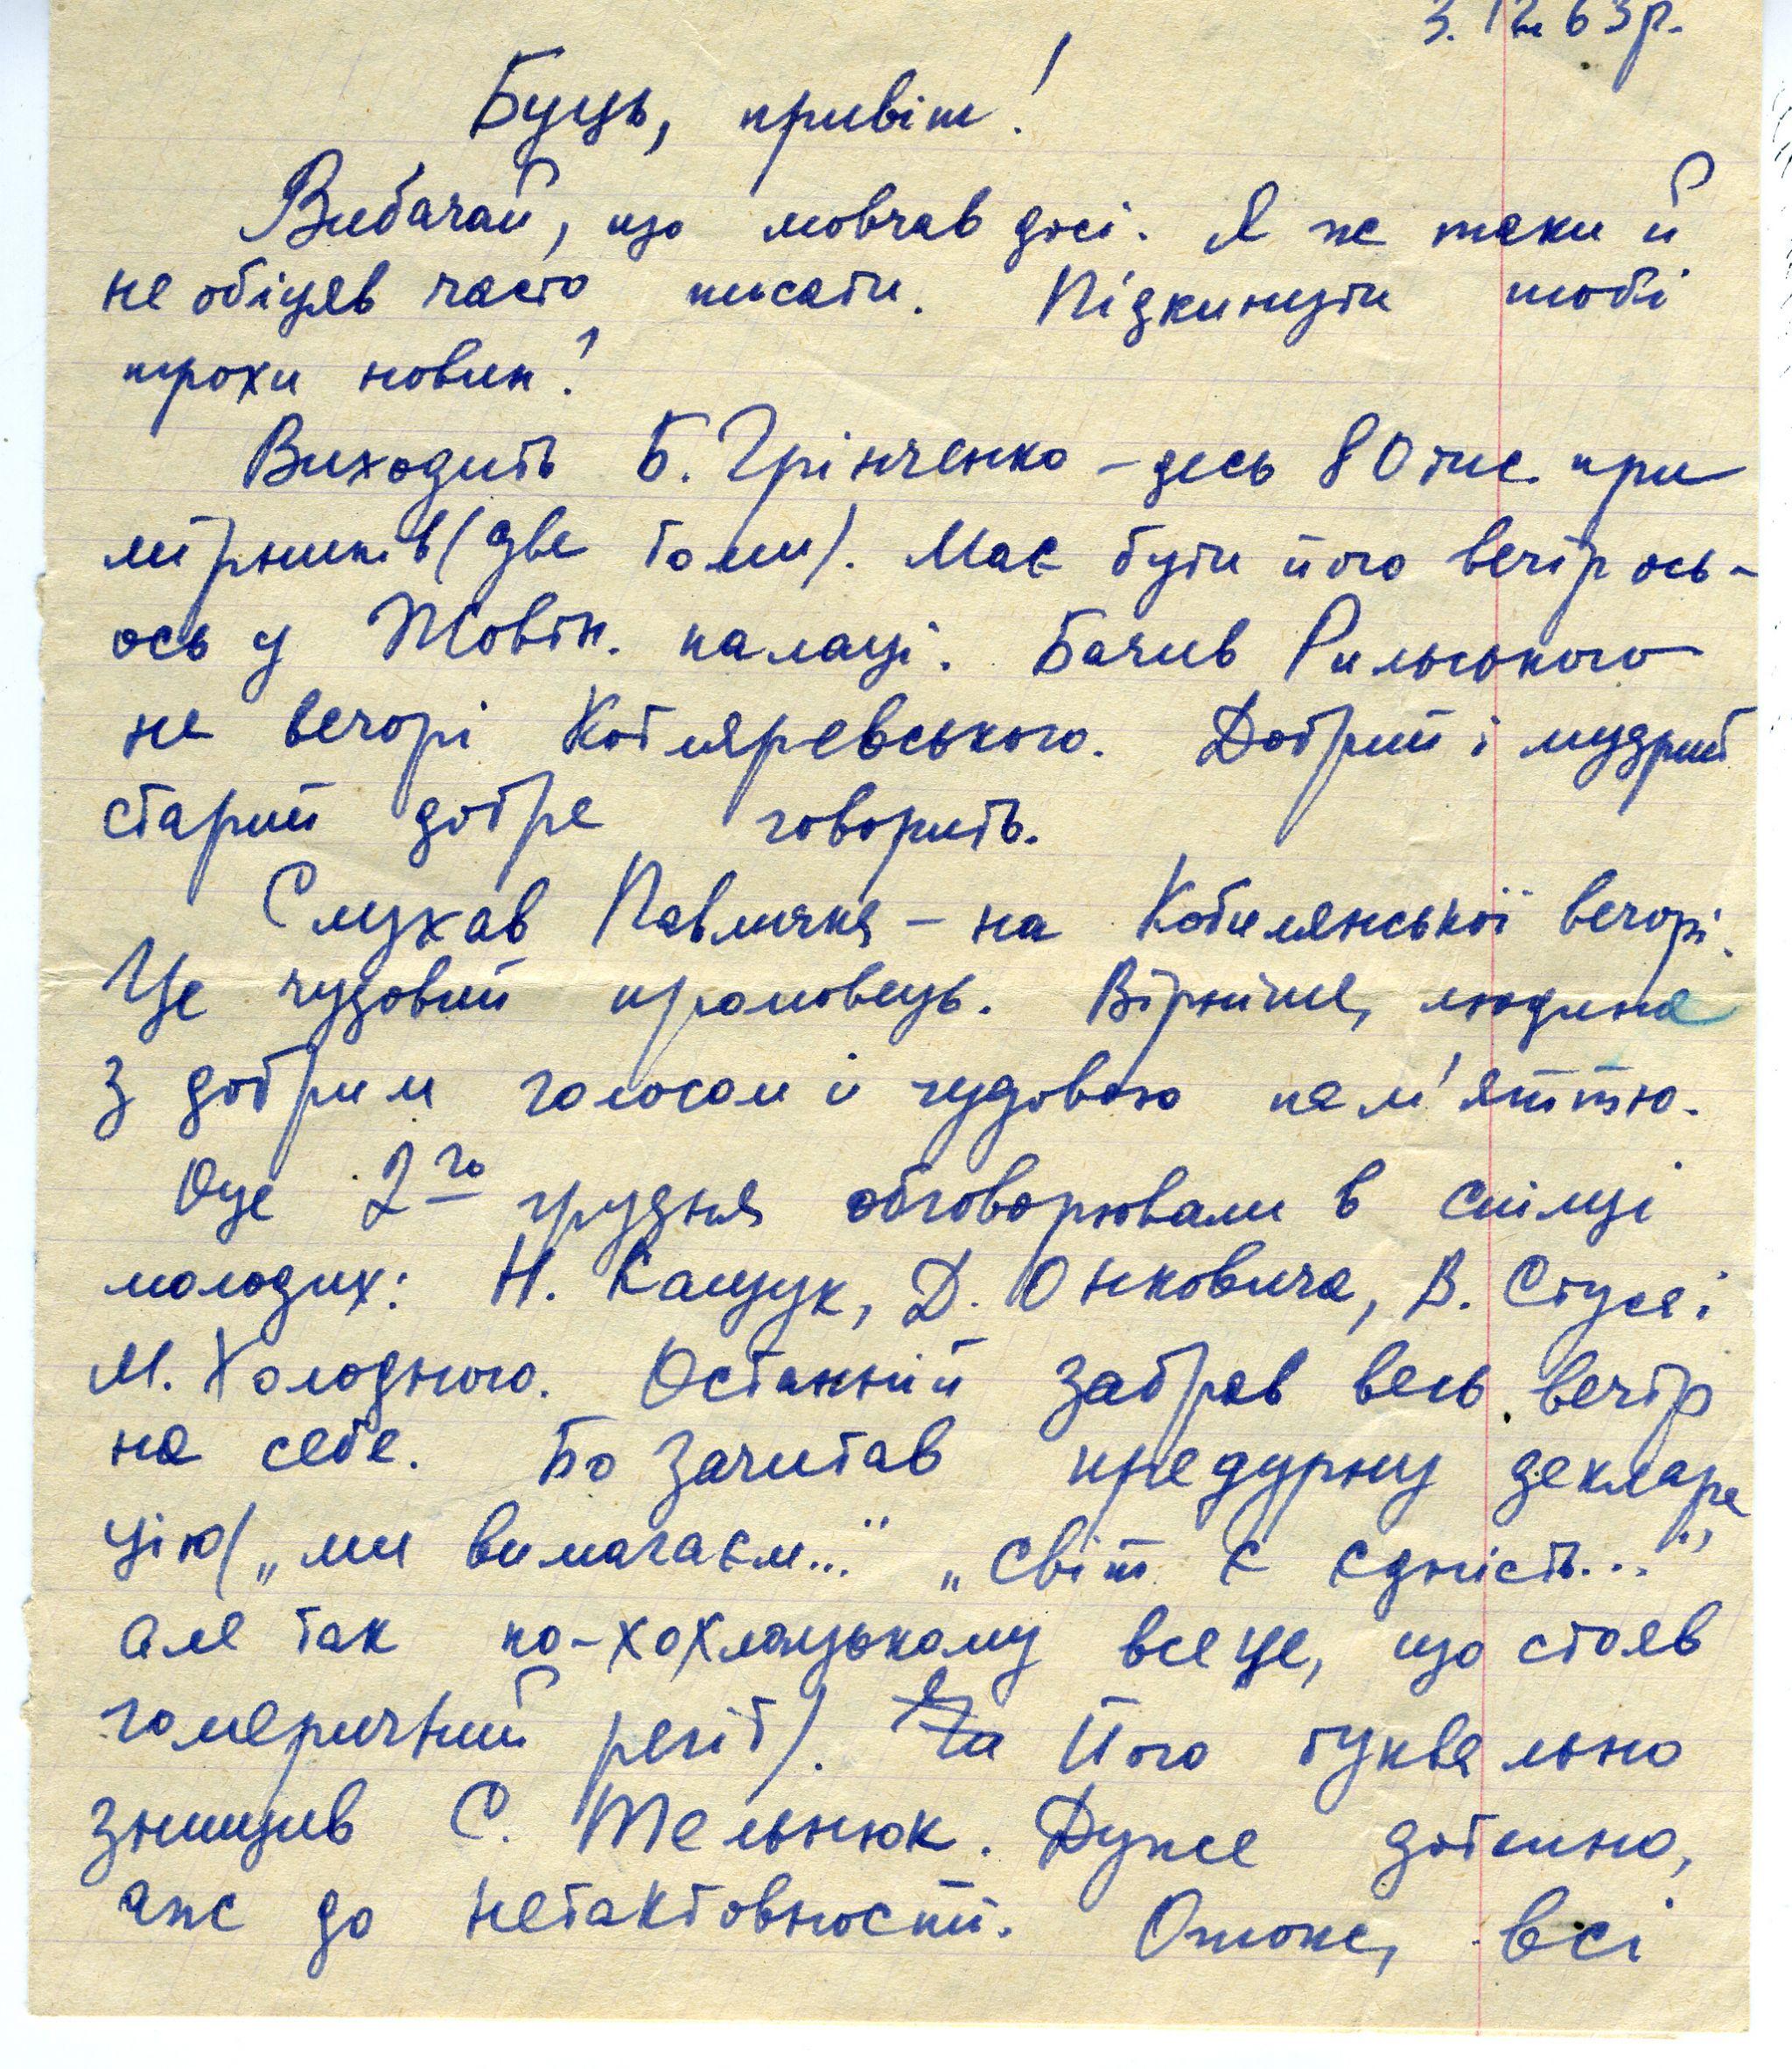 3. 12. 63 р.
Буць, привіт!
Вибачай, що мовчав досі. Я ж таки й
не обіцяв часто писати. Підкинути тобі
трохи новин?
Виходить Б. Грінченко – десь 80 тис. при
мірників (два томи). Має бути його вечір ось-
ось у Жовтн. палаці. Бачив Рильського
на вечорі Котляревського. Добрий і мудрий
старий добре говорить.
Слухав Павличка – на Кобилянської вечорі.
Це чудовий промовець. Вірніше, людина
з добрим голосом і чудовою пам'яттю.
Оце 2го грудня обговорювали в спілці
молодих: Н. Кащук, Д. Онковича, В. Стуса і
М. Холодного. Останній забрав весь вечір
на себе. Бо зачитав предурну деклара
цію („ми вимагаєм..." „світ є єдність..."
але так по-хохлацькому все це, що стояв
гомеричний регіт). Його буквально
знищив С. Тельнюк. Дуже дотепно,
аж до нетактовності. Отже, всі